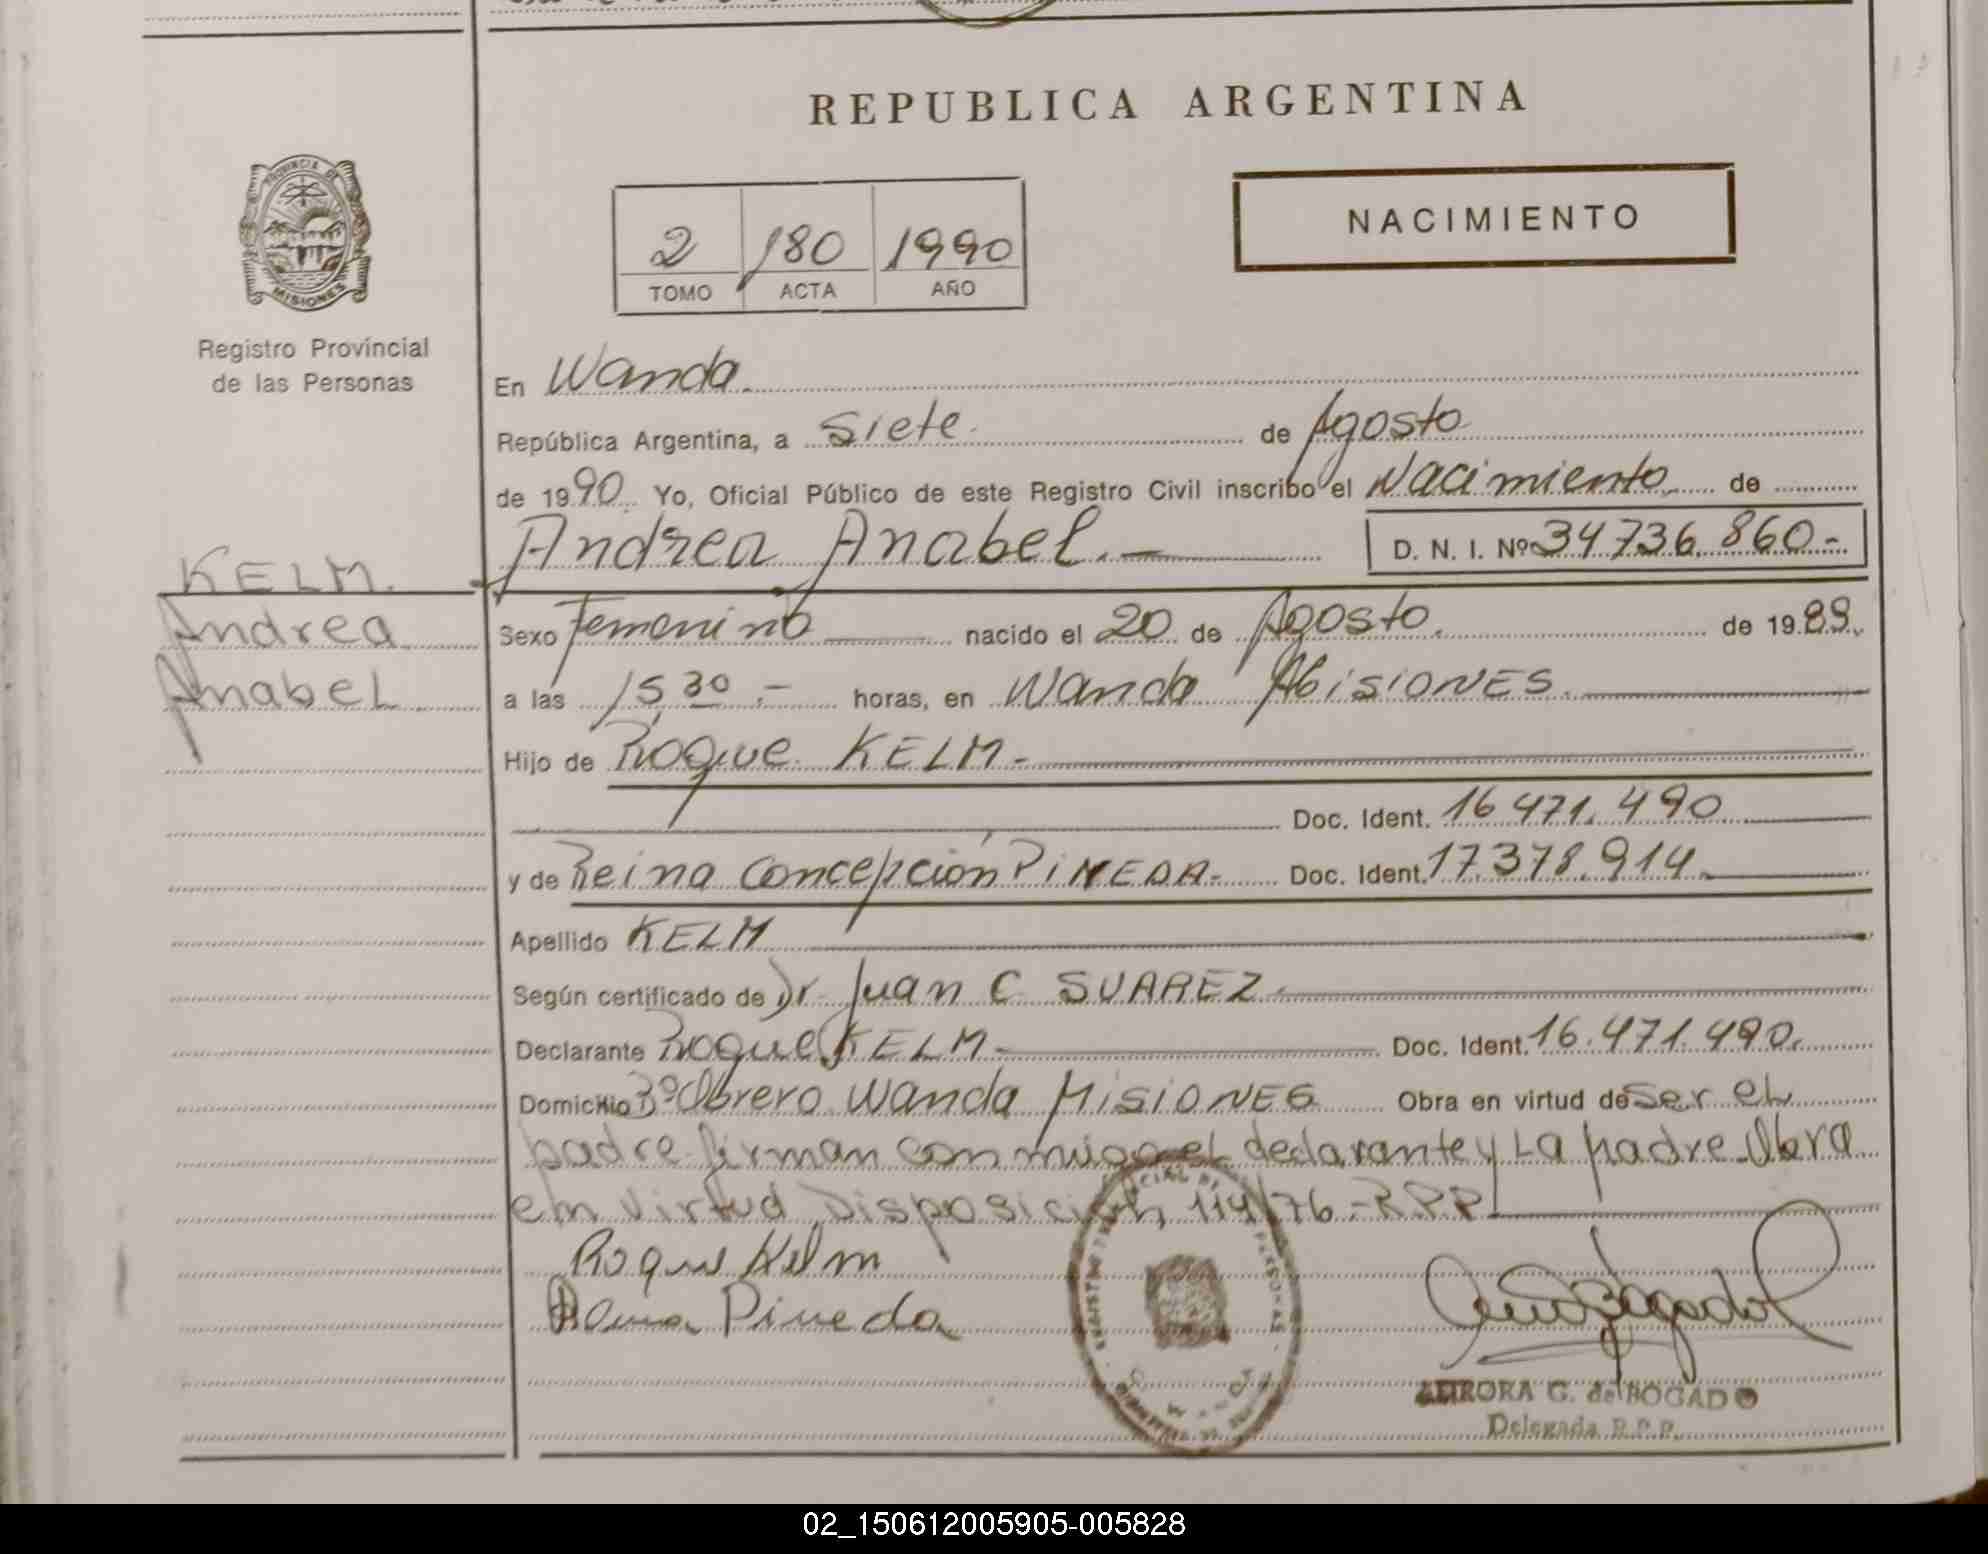 REPUBLICA ARGENTINA
PROVINCIA DE
MISIONES
Registro Provincial
de las Personas
2 180 1990
TOMO ACTA AÑO
NACIMIENTO
En Wanda
República Argentina, a Siete de Agosto
de 1990 Yo, Oficial Público de este Registro Civil inscribo el Nacimiento de
Andrea Anabel.— D. N. I. Nº 34736.860-
KELM.
Andrea
Anabel
Sexo Femenino nacido el 20 de Agosto. de 1989.
a las 15,30 .- horas, en Wanda Misiones.
Hijo de Roque KELM-
Doc. Ident. 16 471.490
y de Reina Concepción PiNEDA- Doc. Ident. 17.378.914.
Apellido KELM
Según certificado de Dr Juan C SUAREZ.
Declarante Roque KELM- Doc. Ident. 16.471.490.
Domicilio Bº Obrero Wanda MisiONES Obra en virtud de ser el
padre firman conmigo el declarante y La madre-Obra
en virtud Disposición 114/76-R.P.P
Roque Kelm
Pineda
AURORA G. de BOGADO
Delegada R.P.P.
02_150612005905-005828